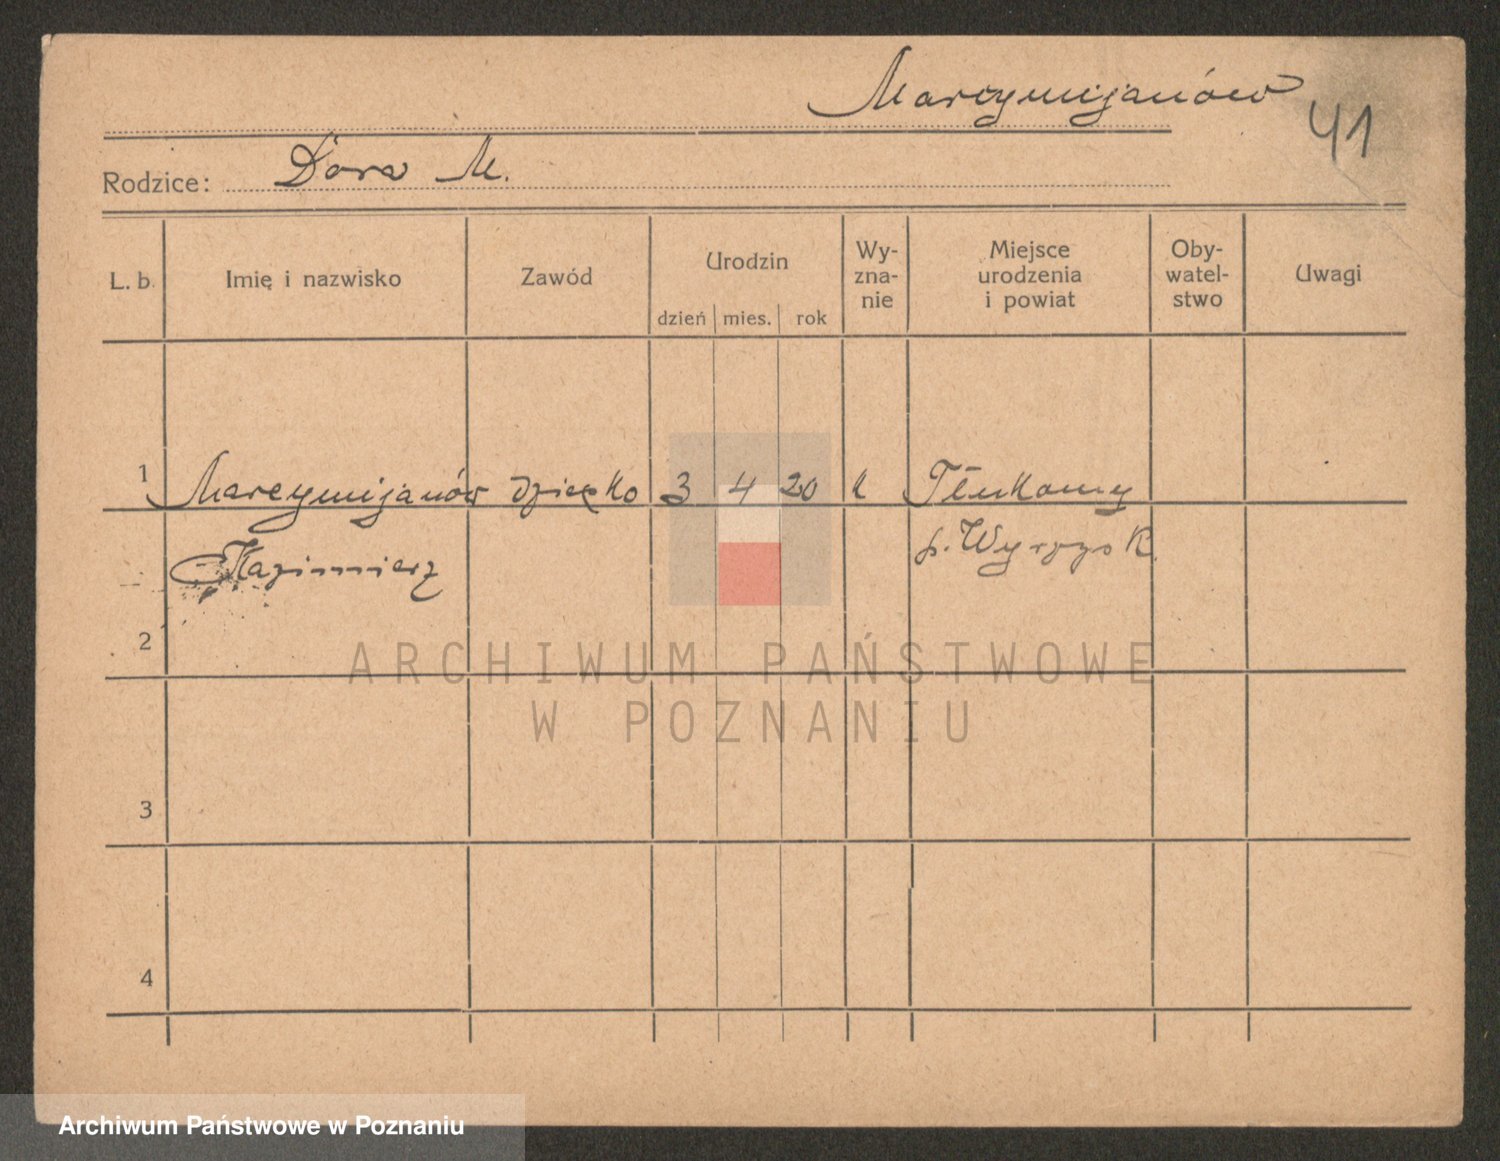 Marcymijanów
41
Rodzice: Dora M.
L. b. Imię i nazwisko Zawód Urodzin dzień mies. rok Wy-zna-nie Miejsce urodzenia i powiat Oby-watel-stwo Uwagi
1 Marcymijanów dziecko 3 4 20 k Tłukomy
Kazimierz p. Wyrzysk.
2
3
4
ARCHIWUM PAŃSTWOWE
W POZNANIU
Archiwum Państwowe w Poznaniu